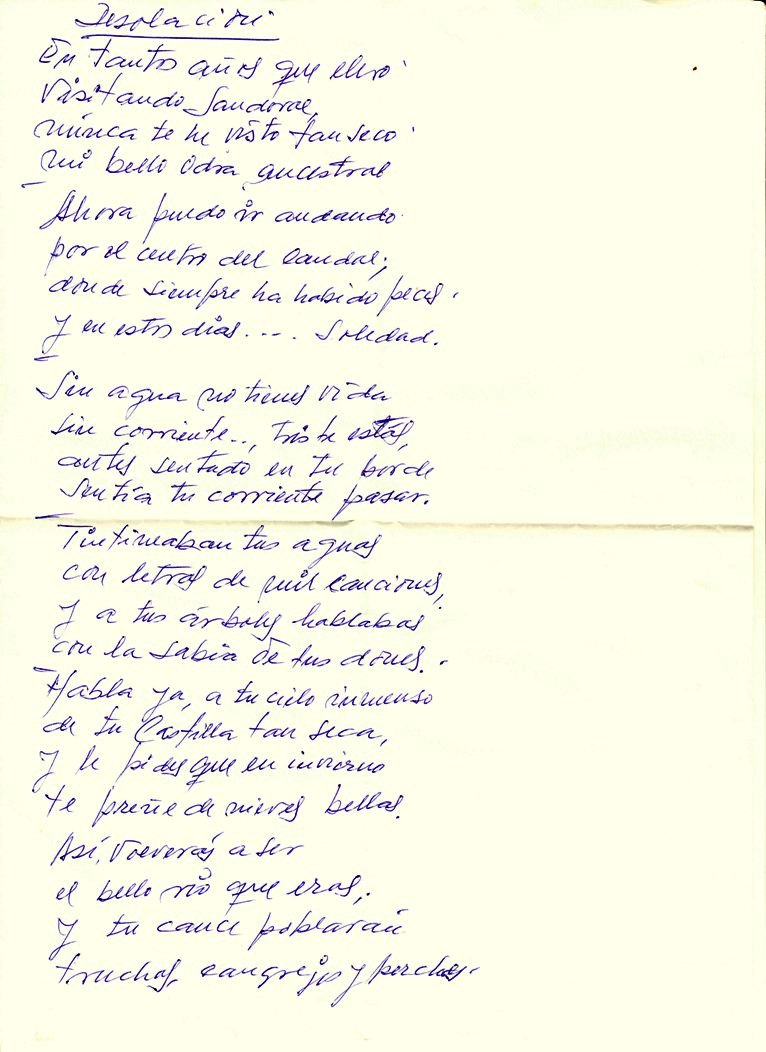 Desolación
En tantos años que llevo
Visitando Sandoval,
nunca te he visto tan seco
mi bello Odra ancestral
Ahora puedo ir andando
por el centro del caudal;
donde siempre ha habido peces.
Y en estos días.... Soledad.
Sin agua no tienes vida
sin corriente.., triste estás,
antes sentado en tu borde
Sentía tu corriente pasar.
Tintineaban tus aguas
con letras de mil canciones,
y a tus árboles hablabas
con la sabia de tus dones.
Habla ya, a tu cielo inmenso
de tu Castilla tan seca,
y le pides que en invierno
te preñe de nieves bellas.
Así, volverás a ser
el bello río que eras;
Y tu cauce poblarán
truchas, cangrejos y percas.